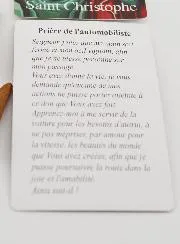 Saint Christophe
Prière de l'automobiliste
Seigneur
ferme et mon œil vigilant, afin
que je ne blesse personne sur
mon passage.
Vous avez donné la vie, je vous
demande qu'aucune de mes
actions ne puisse porter atteinte à
ce don que Vous avez fait.
Apprenez-moi à me servir de la
voiture pour les besoins d'autrui, à
ne pas mépriser, par amour pour
la vitesse, les beautés du monde
que Vous avez créées, afin que je
puisse poursuivre la route dans la
joie et l'amabilité.
Ainsi soit-il !